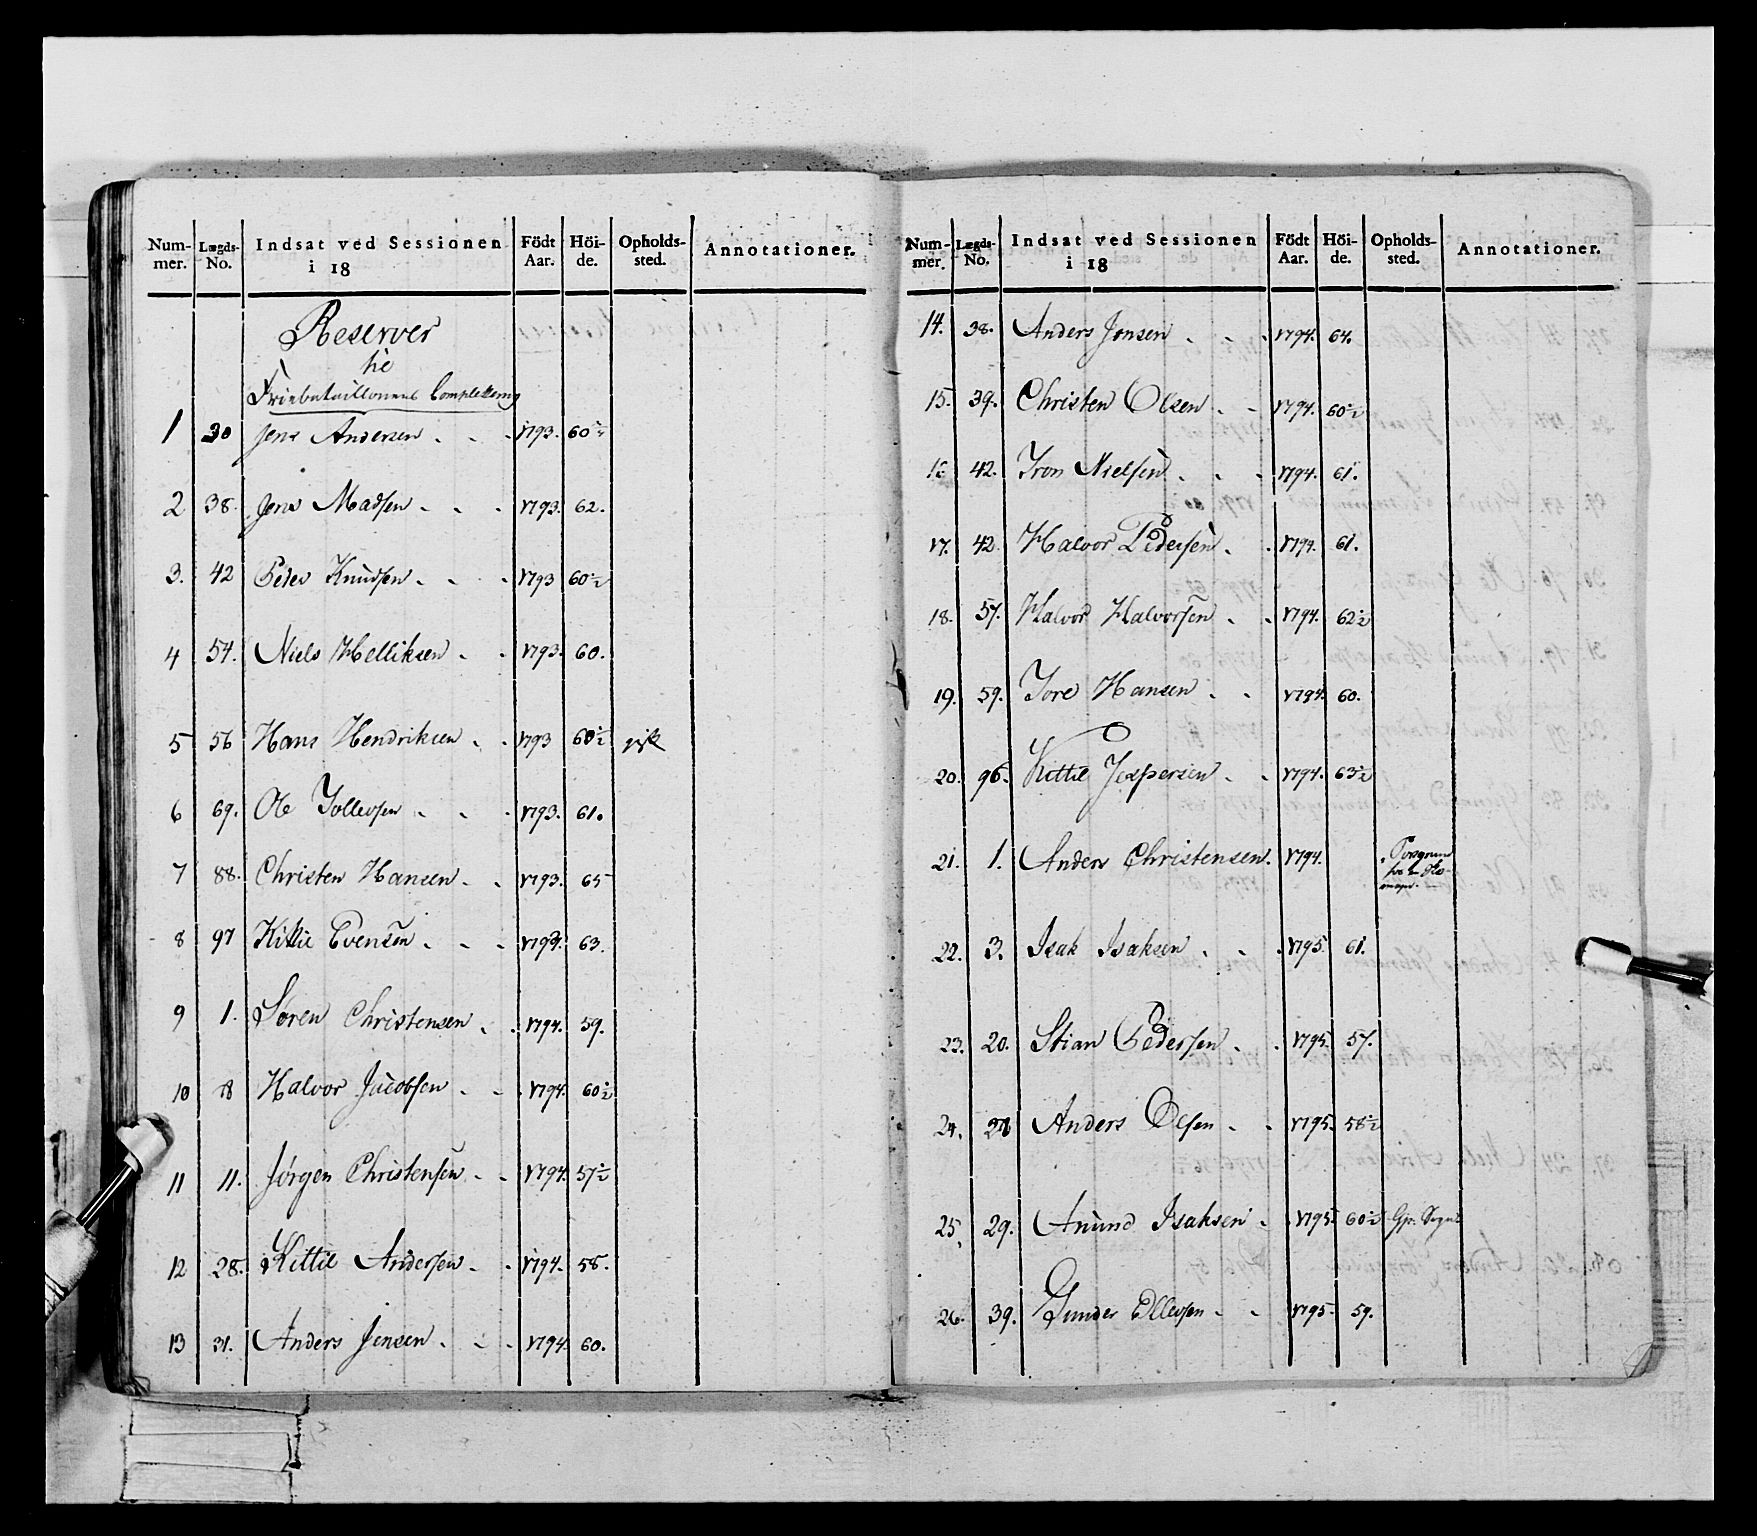 Num-mer. Lægds-No. Indsat ved Sessionen i 18 Födt Aar. Höi-de. Opholds-sted. Annotationer.
Reserver
til
Friebataillonens Completering
1 30 Jens Andersen . . . 1793. 60½
2 38. Jens Madsen . . . 1793. 62.
3. 42 Peder Knudsen . . . 1793 60½
4 54. Niels Helliksen . . 1793. 60.
5 56 Hans Hendriksen . . 1793 60½
6 69. Ole Tollevsen . . . 1793. 61.
7 88. Christen Hansen . . 1793. 65
8 97 Kittil Evensen . . . 1793. 63.
9 1. Søren Christensen . . 1794. 59.
10 8 Halvor Jacobsen . . 1794. 60½
11 11. Jørgen Christensen . . 1794. 57½
12 28. Kittil Andersen . . 1794. 58.
13 31. Anders Jensen . . . 1794. 60.
Num-mer. Lægds-No. Indsat ved Sessionen i 18 Födt Aar. Höi-de. Opholds-sted. Annotationer.
14. 38. Anders Jonsen . . . 1794. 64.
15. 39. Christen Olsen . . 1794. 60½
16 42. Tron Nielsen . . . 1794. 61.
17. 42. Halvor Pedersen . . 1794. 61.
18. 57. Halvor Halvorsen . . 1794. 62½
19. 59. Tore Hansen . . 1794. 60.
20. 96. Kittil Jespersen . . 1794. 63½
21. 1. Anders Christensen. 1794. Porsgrund
22. 3. Isak Isaksen . . . 1795 61.
23. 20. Stian Pedersen . . 1795. 57.
24. 28 Anders Olsen . . 1795. 58½
25. 29. Anund Isaksen . 1795. 60½
26. 39. Gunder Ellevsen . . 1795. 59.